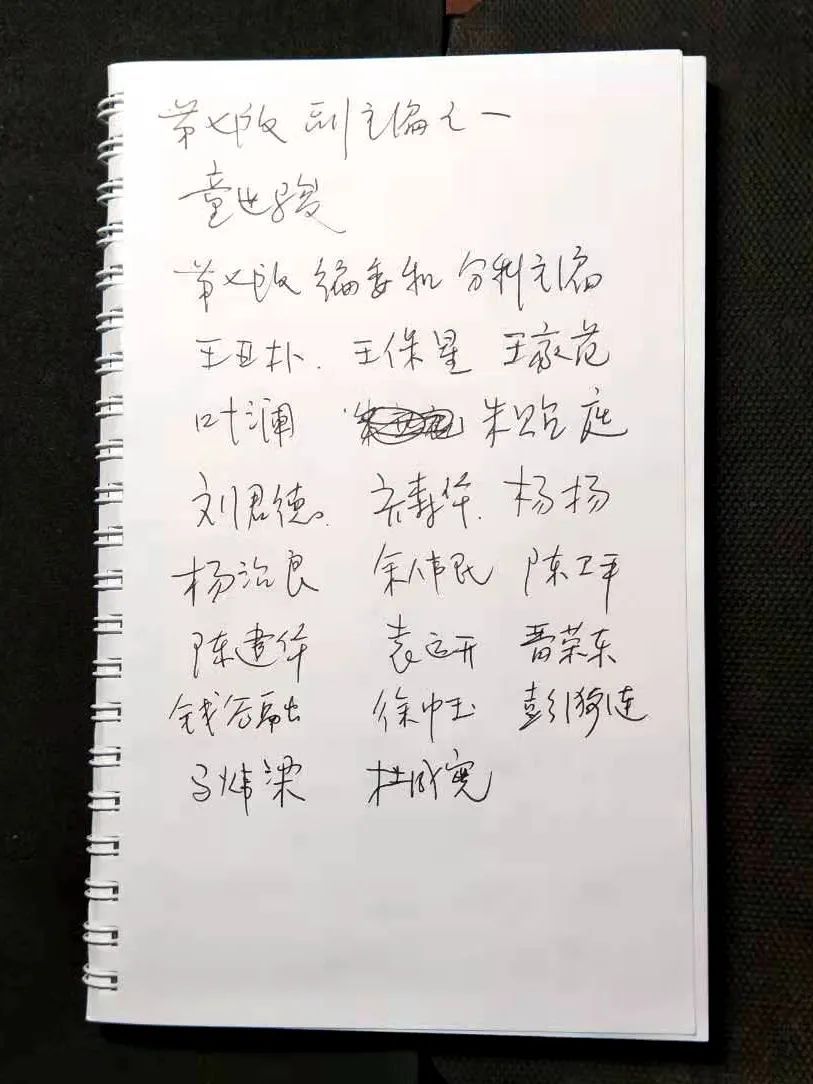 第七版 副主编之一
童世骏
第七版 编委和 分科主编
王亚朴. 王保星 王家范
叶澜 朱贻庭
刘君德. 齐森华. 杨扬
杨治良 余伟民 陈卫平
陈建华 袁运开 晋荣东
钱谷融 徐中玉 彭漪涟
马炜梁 杜成宪